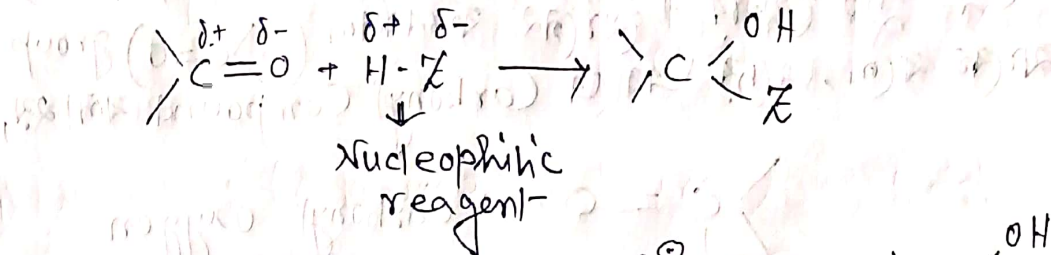 δ+ δ- δ+ δ-
C=O + H-Z ⟶ C OH Z
↓
Nucleophilic
reagent
OH